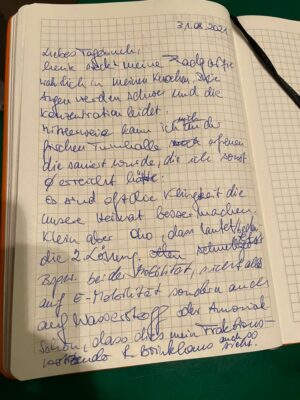 31.08.2021
Liebes Tagebuch,
heute steckt meine Radgastie
wahrlich in meinen Knochen. Die
Augen werden schwer und die
Konzentration leidet.
Mittlerweile kann ich mich an der
frischen Turnhalle erfreuen
die saniert wurde, die ich sonst
erreicht hätte.
Es sind oft die Kleinigkeit die
unsere Heimat besser machen.
Klein aber oho, das lautet
die 2. Lösung.
Bspw. bei der Mobilität, nicht alles
auf E-Mobilität sondern auch
auf Wasserstoff oder Amoniak
Schön, dass dies mein Fraktions-
R. Brinkhaus auch so
sieht.